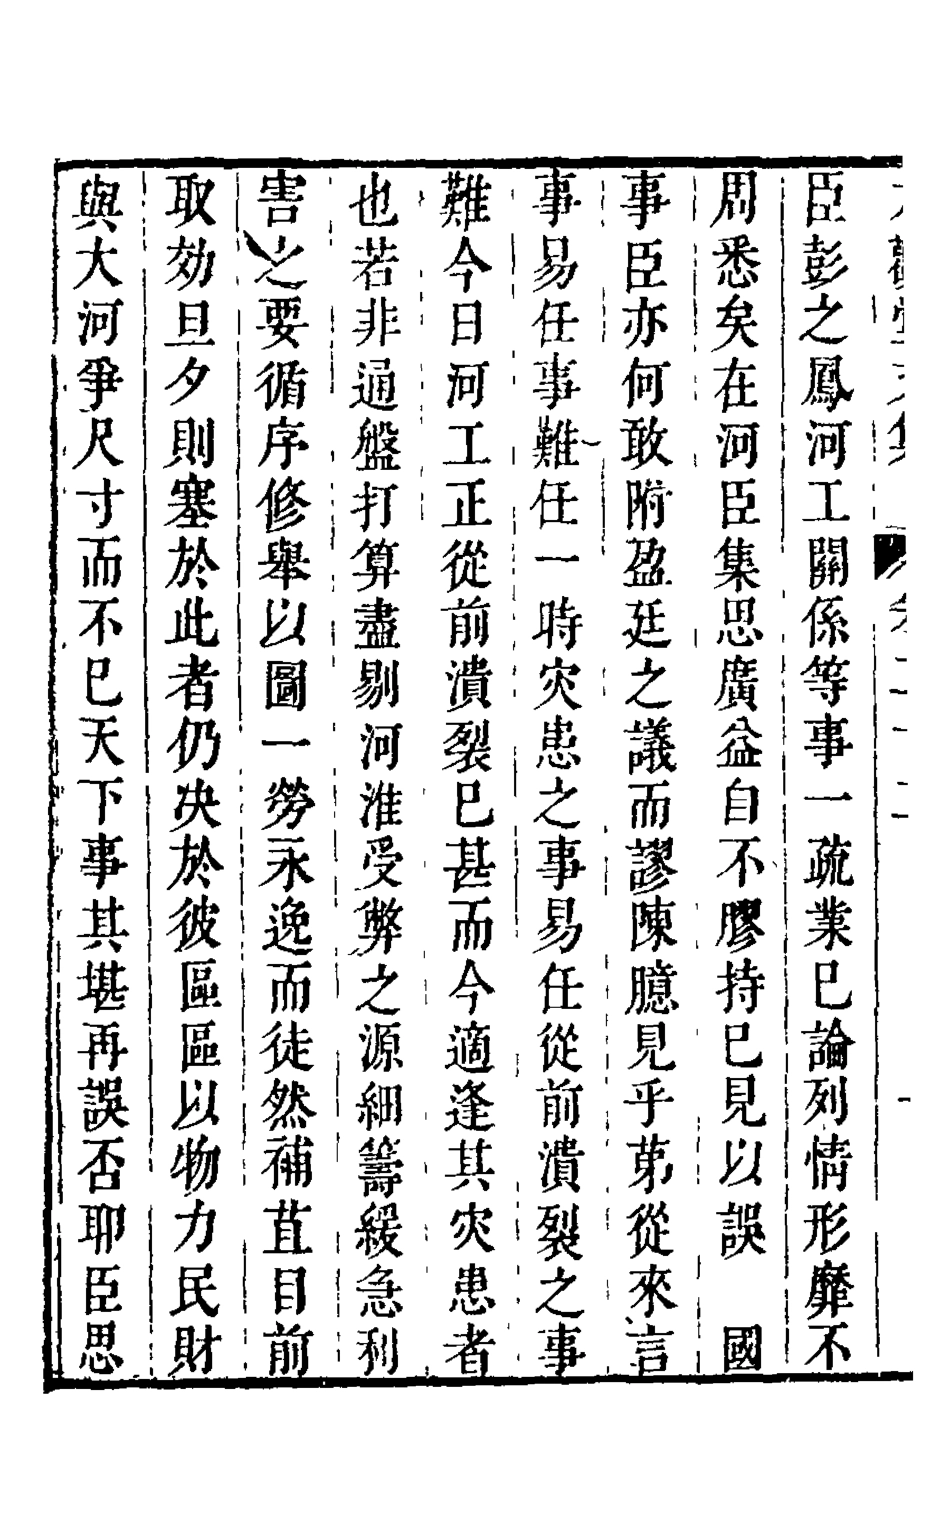 臣彭之鳳河工關係等事一疏業已論列情形靡不
周悉矣在河臣集思廣益自不膠持已見以誤　國
事臣亦何敢附盈廷之議而謬陳臆見乎苐從來言
事易任事難任一時灾患之事易任從前潰裂之事
難今日河工正從前潰裂已甚而今適逢其灾患者
也若非通盤打算盡剔河淮受弊之源細籌緩急利
害之要循序修舉以圖一勞永逸而徒然補苴目前
取効旦夕則塞於此者仍决於彼區區以物力民財
與大河爭尺寸而不已天下事其堪再誤否耶臣思